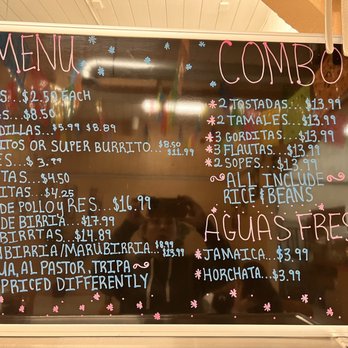 MENU
S... $2.50 EACH
S...$8.50
DILLAS...$5.99 $8.89
ITOS OR SUPER BURRITO...$8.50 $11.99
ES... $3.99
TAS...$4.50
ITAS...$4.25
DE POLLO Y RES...$16.99
DE BIRRIA...$13.99
BIRRTAS...$14.89
BIRRIA/MARUBIRRIA...$8.99 $13.99
UA, AL PASTOR, TRIPA
PRICED DIFFERENTLY
COMBO
2 TOSTADAS...$13.99
2 TAMALES...$13.99
3 GORDITAS...$13.99
3 FLAUTAS...$13.99
2 SOPES...$13.99
ALL INCLUDE
RICE & BEANS
AGUAS FRES
JAMAICA...$3.99
HORCHATA...$3.99